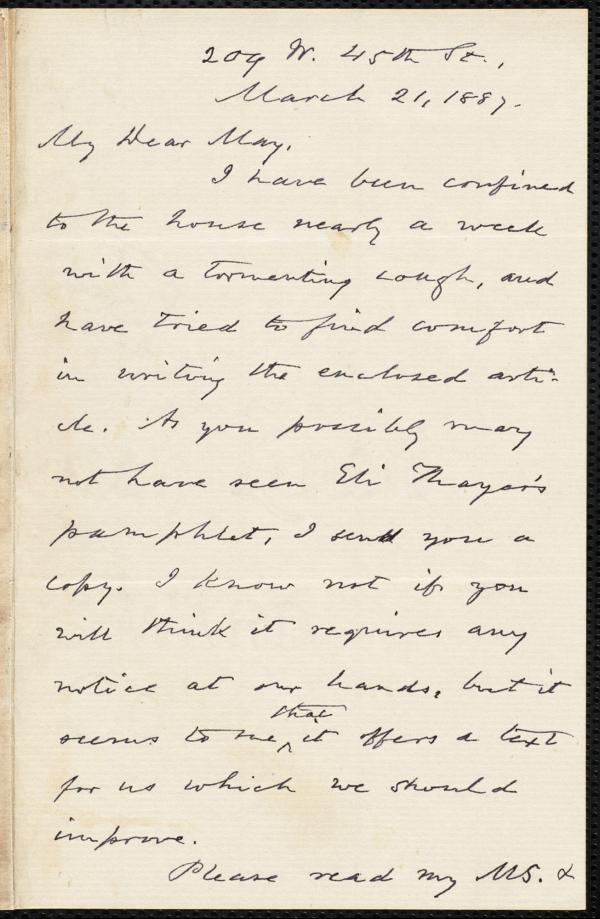 209 W. 45th St.,
March 21, 1887.
My Dear May,
I have been confined
to the house nearly a week
with a tormenting cough, and
have tried to find comfort
in writing the enclosed arti-
cle. As you possibly may
not have seen Eli Thayer's
pamphlet, I send you a
copy. I know not if you
will think it requires any
notice at our hands, but it
seems to me that it offers a text
for us which we should
improve.
Please read my MS. &